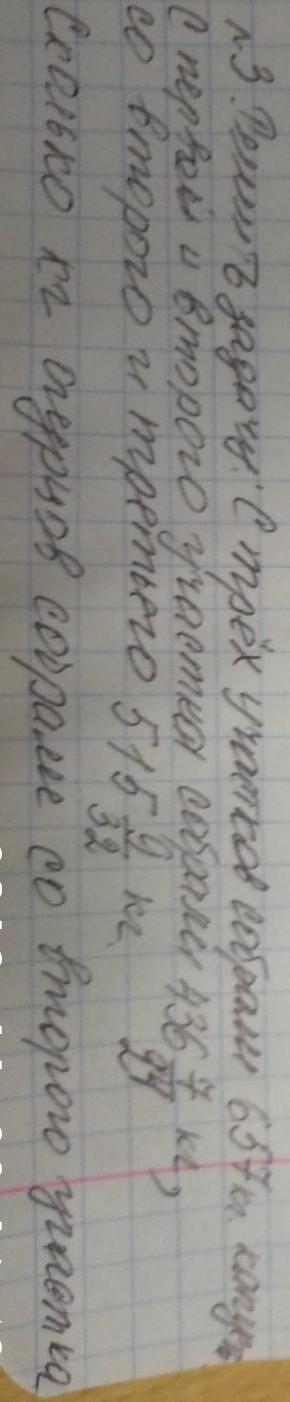 №3. Решить задачу: С трёх участков собрали 657 кг. капус
С первой и второго участка собрали 436 7/24 кг,
со второго и третьего 515 9/32 кг.
Сколько кг огурцов собрали со второго участка